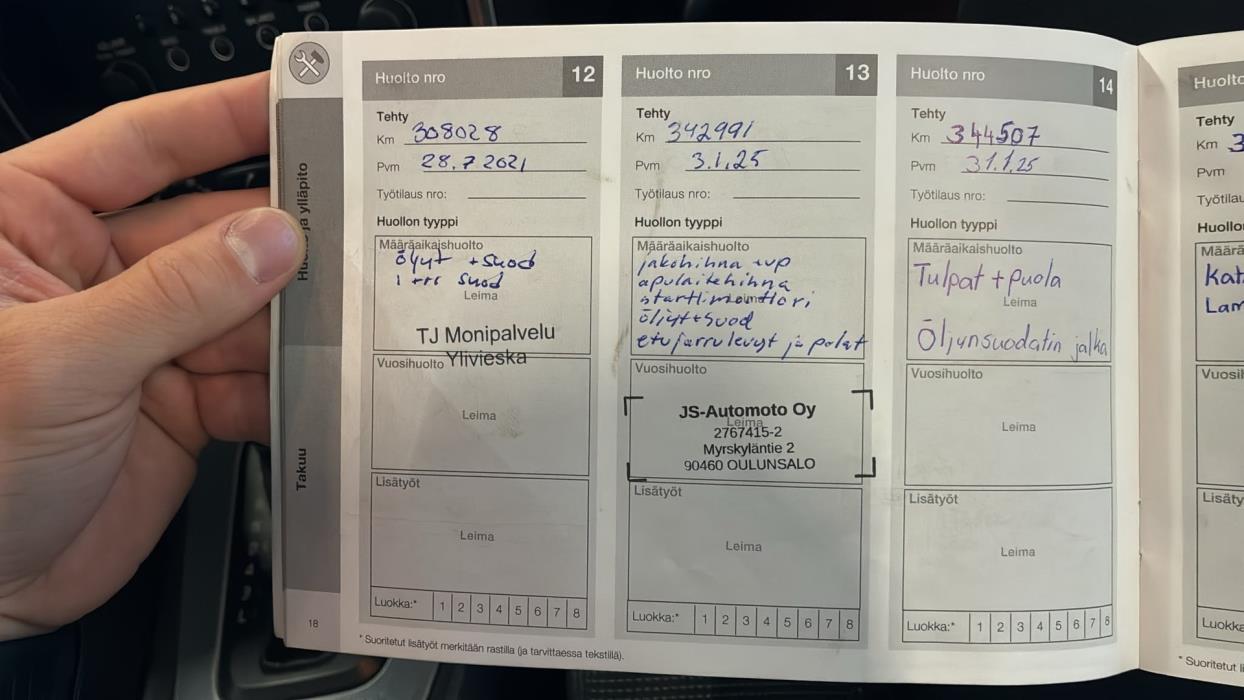 Huolto nro 12
Tehty
Km 308028
Pvm 28.7 2021
Työtilaus nro:
Huollon tyyppi
Määräaikaishuolto
öljyt + suod
suod
Leima
TJ Monipalvelu
Ylivieska
Vuosihuolto
Leima
Lisätyöt
Leima
Luokka:* 1 2 3 4 5 6 7 8
Huolto nro 13
Tehty
Km 342991
Pvm 3.1.25
Työtilaus nro:
Huollon tyyppi
Määräaikaishuolto
jakohihna + vp
apulaitehihna
Leima
öljyt + suod
etujarrulevyt ja palat
Vuosihuolto
JS-Automoto Oy
Leima
2767415-2
Myrskyläntie 2
90460 OULUNSALO
Lisätyöt
Leima
Luokka:* 1 2 3 4 5 6 7 8
Huolto nro 14
Tehty
Km 344507
Pvm 31.1.25
Työtilaus nro:
Huollon tyyppi
Määräaikaishuolto
Tulpat + puola
Leima
Öljynsuodatin jalka
Vuosihuolto
Leima
Lisätyöt
Leima
Luokka:* 1 2 3 4 5 6 7 8
Huolto
Tehty
Km 3
Pvm
Työtilau
Huollo
Määrä
Kat
Lam
Vuosi
Lisäty
Luokka
* Suoritetut li
ja ylläpito
Takuu
18
* Suoritetut lisätyöt merkitään rastilla (ja tarvittaessa tekstillä).